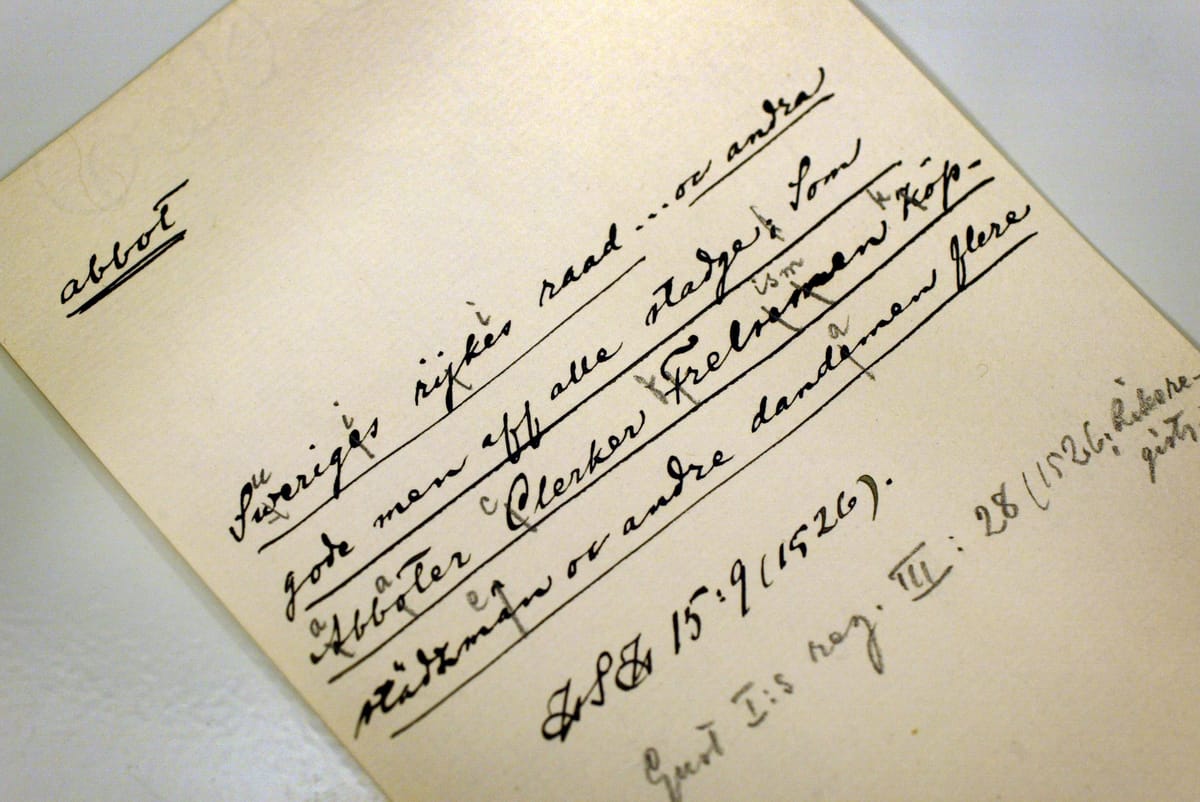 abbot
Sweriges rijkes raad ... oc andra
gode men aff alle stadge: Som
Abboter Clerker Frelsemen köp-
städzmän oc andre dandemen flere
HSH 15:9 (1526).
Gust I:s reg. III: 28 (1526; Riksre-
gistr.
u i i
k
ism
a a c k
e a